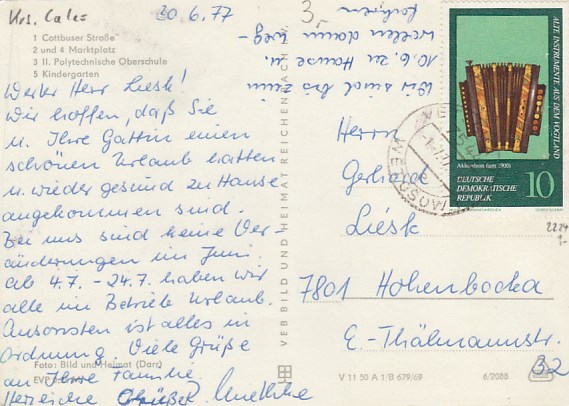 Krs. Calau
30.6.77
1 Cottbuser Straße
2 und 4 Marktplatz
3 II. Polytechnische Oberschule
5 Kindergarten
Werter Herr Liesk!
Wir hoffen, daß Sie
u. Ihre Gattin einen
schönen Urlaub hatten
u. wieder gesund zu Hause
angekommen sind.
Bei uns sind keine Ver-
änderungen im Juni.
ab 4.7. - 24.7. haben wir
alle im Betrieb Urlaub.
Ansonsten ist alles in
Ordnung. Viele Grüße
an Ihre Familie.
Herzliche Grüße
Foto: Bild und Heimat (Darr)
EVP
Wir sind bis zum
10.6. zu Hause u.
wollen dann weg-
fahren
3.
VEB BILD UND HEIMAT REICHENBACH i. V.
ALTE INSTRUMENTE AUS DEM VOGTLAND
Akkordeon (um 1900)
DEUTSCHE
DEMOKRATISCHE
REPUBLIK
10
Herrn
Gerhard
Liesk
7801 Hohenbocka
E.-Thälmannstr.
32
2224
1-
V 11 50 A 1/B 679/69
6/2088